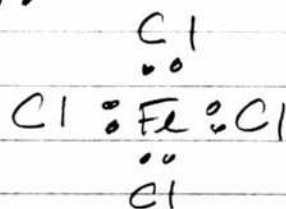 Cl
Cl : Fe : Cl
Cl